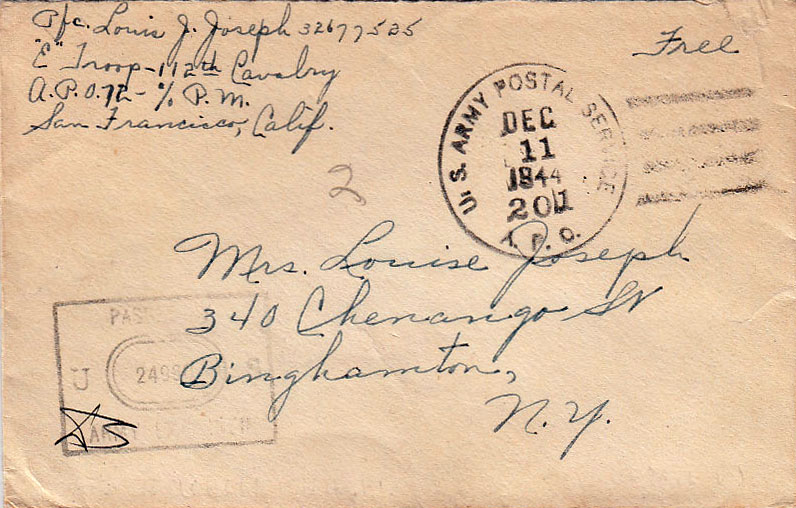 Pfc. Louis J. Joseph 32677525
"E" Troop - 112th Cavalry
A.P.O. 72 - % P.M.
San Francisco, Calif.
Free
U. S. ARMY POSTAL SERVICE
DEC
11
1944
201
A. P. O.
2
Mrs. Louise Joseph
340 Chenango St
Binghamton,
N.Y.
U S
ARMY